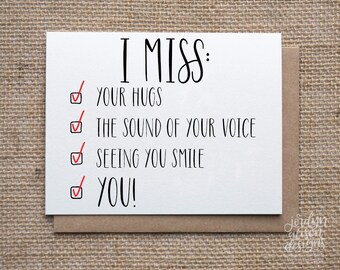 I MISS:
YOUR HUGS
THE SOUND OF YOUR VOICE
SEEING YOU SMILE
YOU!
designs